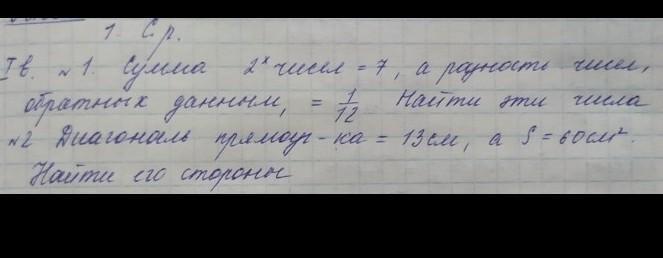 1. Ср.
I в. №1. Сумма 2ˣ чисел = 7, а разность чисел,
обратных данным, = 1/12 Найти эти числа
№2 Диагональ прямоуг-ка = 13 см, а S = 60 см².
Найти его стороны